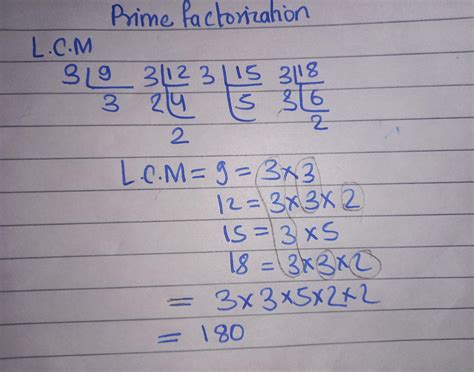 Prime factorization
L.C.M
3 9 3 12 3 15 3 18
3 2 4 5 3 6
2 2
L.C.M = 9 = 3×3
12 = 3×3×2
15 = 3×5
18 = 3×3×2
= 3×3×5×2×2
= 180